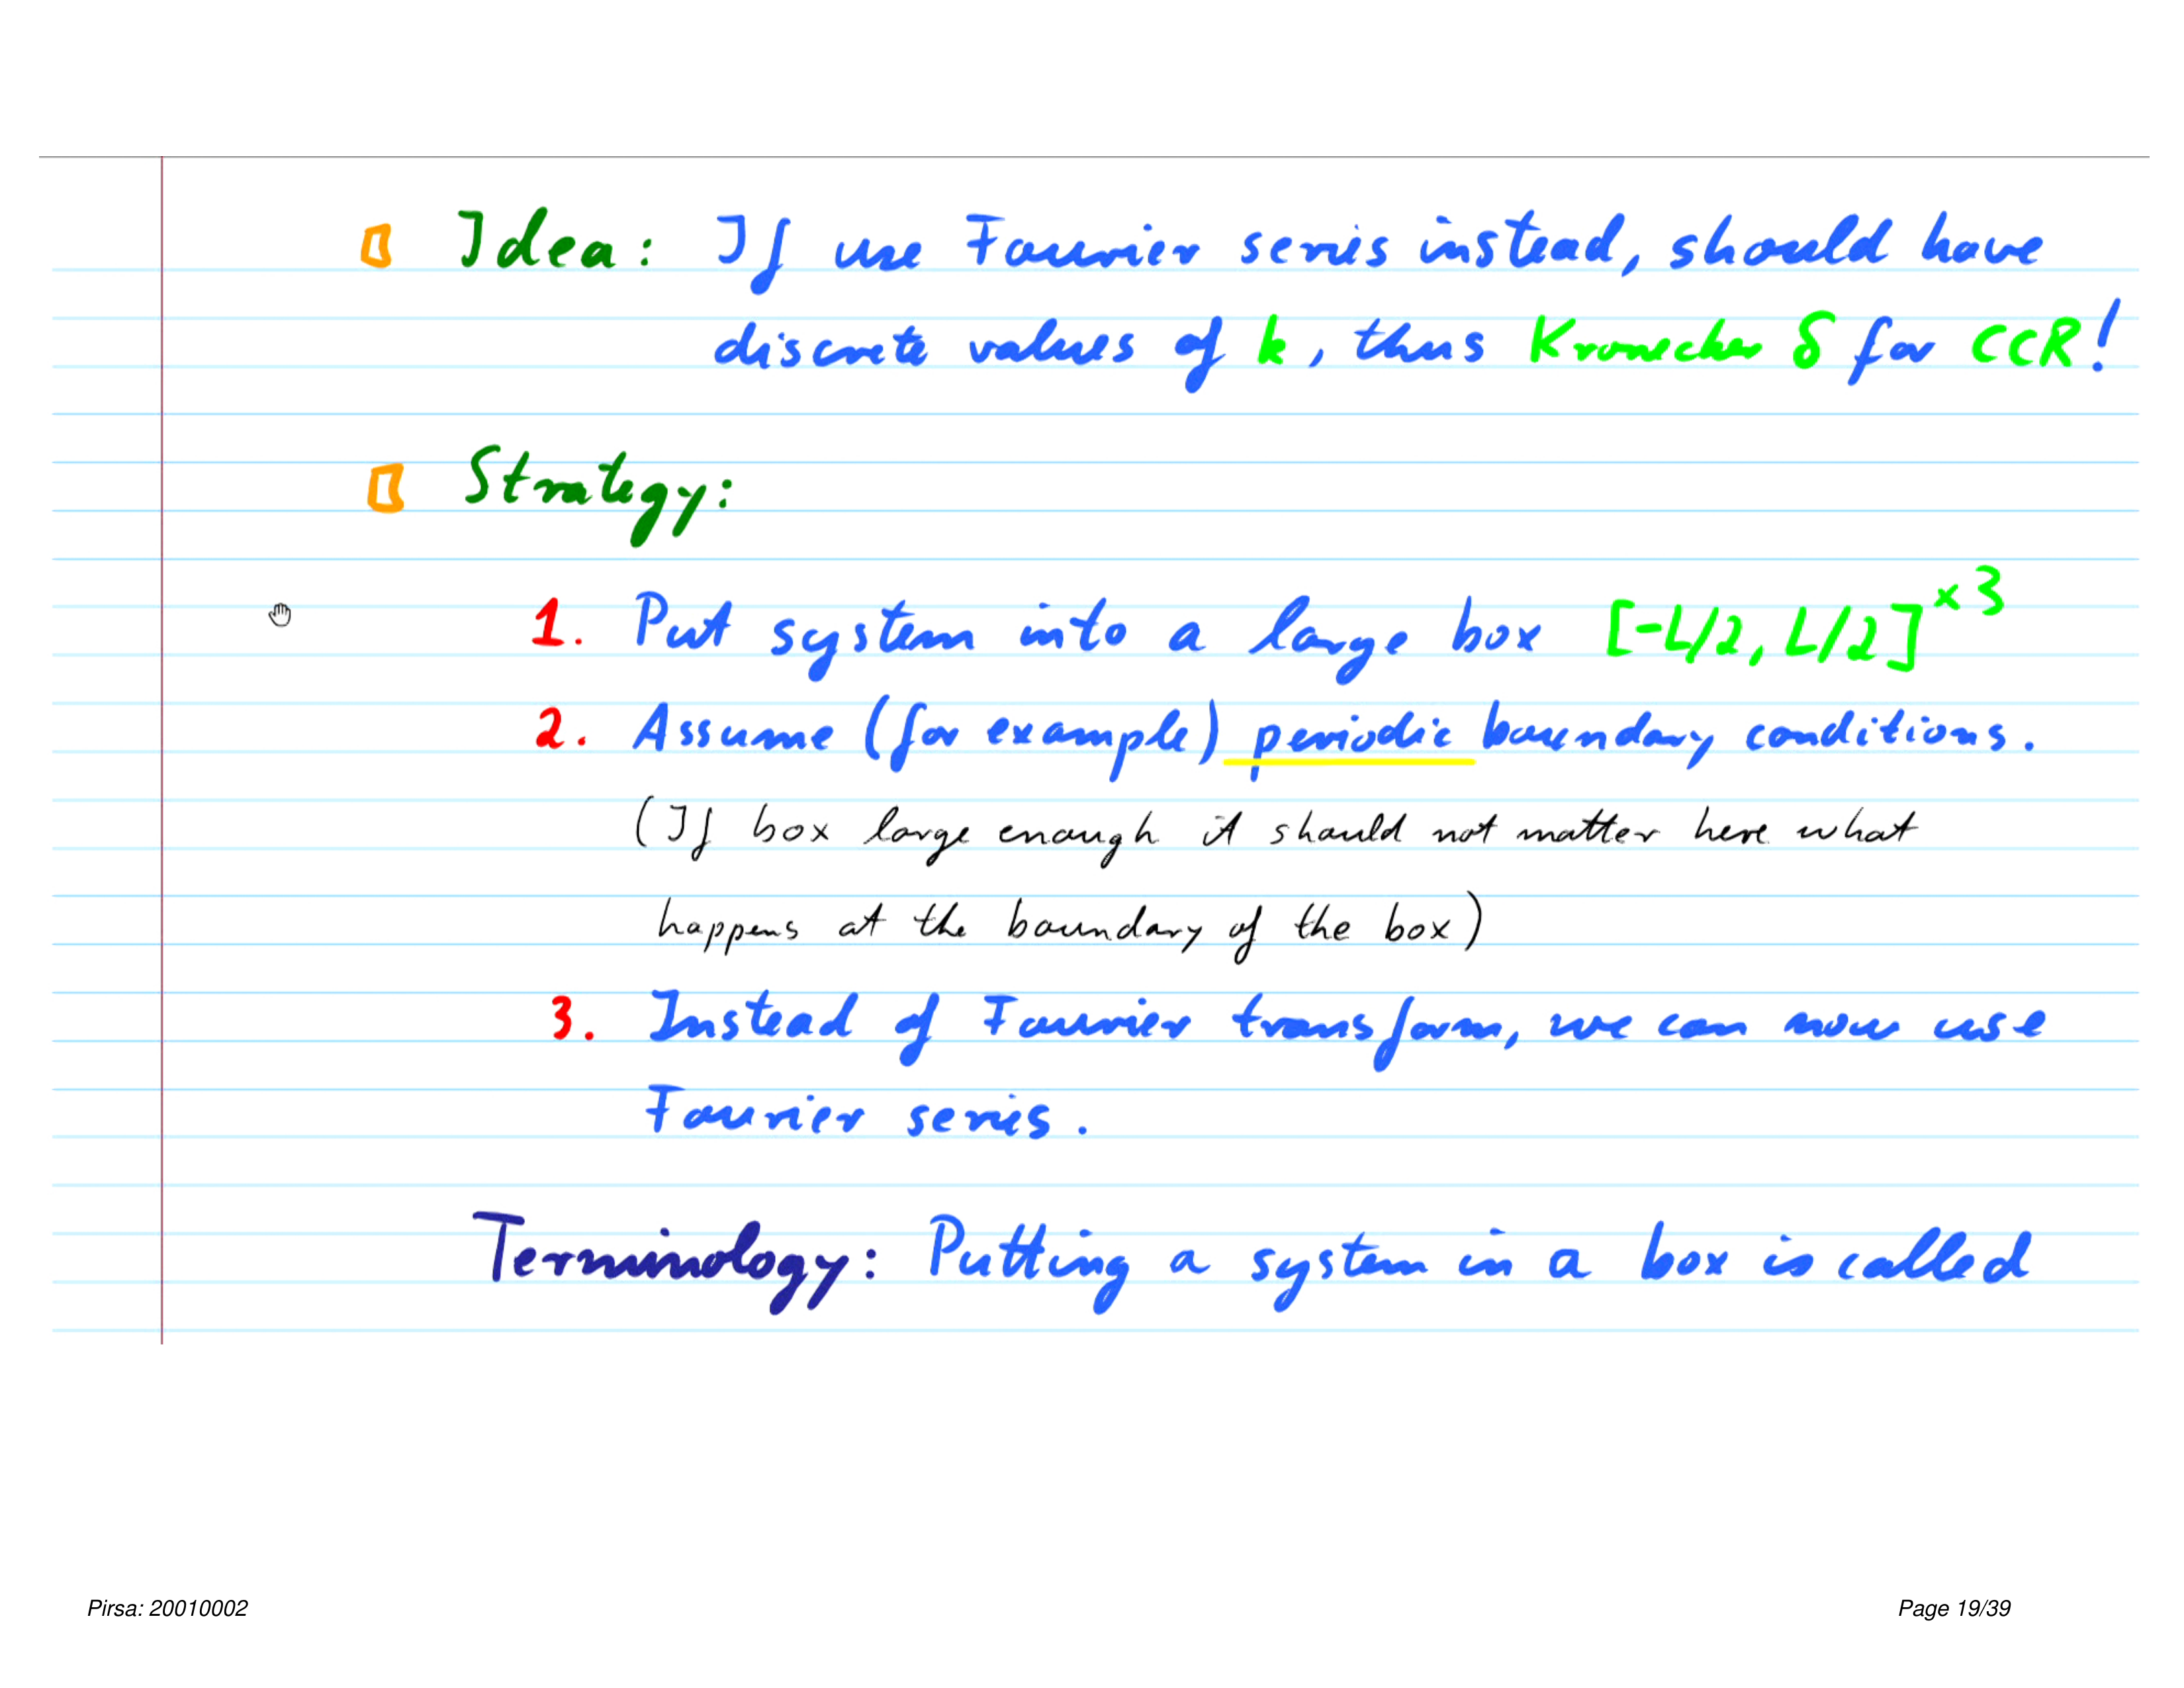 Idea: If use Fourier series instead, should have
discrete values of k, thus Kronecker δ for CCR!
Strategy:
1. Put system into a large box [-L/2, L/2]^{×3}
2. Assume (for example) periodic boundary conditions.
(If box large enough it should not matter here what
happens at the boundary of the box)
3. Instead of Fourier transform, we can now use
Fourier series.
Terminology: Putting a system in a box is called
Pirsa: 20010002
Page 19/39